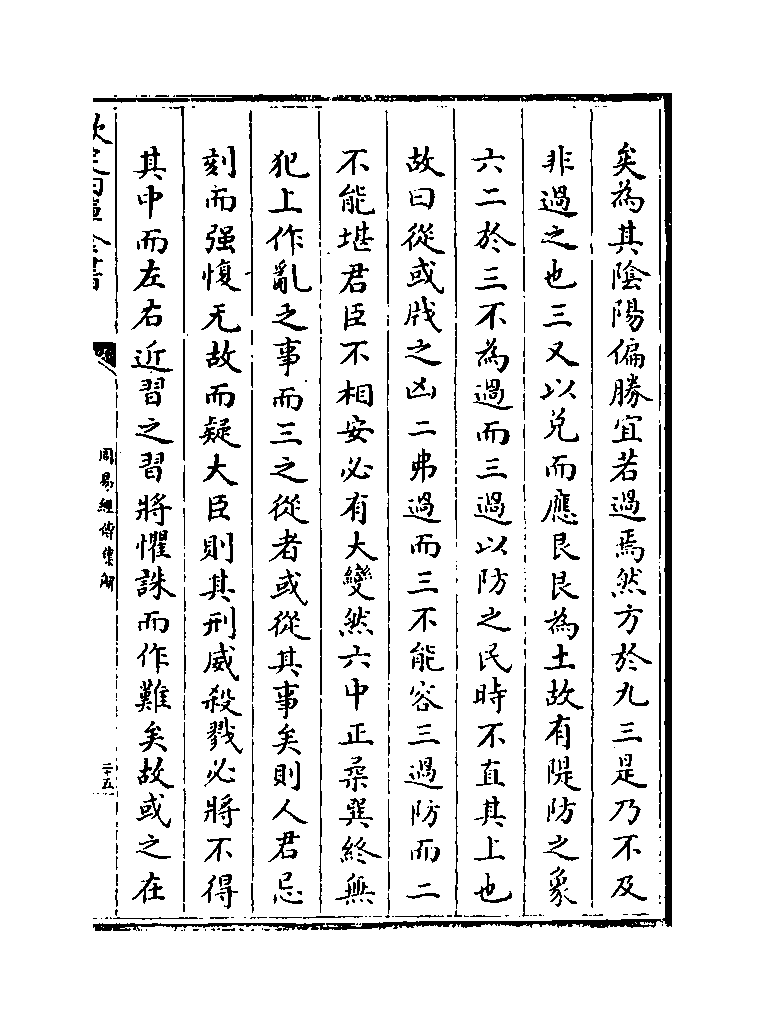 矣為其陰陽偏勝宜若過焉然方於九三是乃不及
非過之也三又以兌而應艮艮為土故有隄防之象
六二於三不為過而三過以防之民時不直其上也
故曰從或戕之凶二弗過而三不能容三過防而二
不能堪君臣不相安必有大變然六中正柔巽終無
犯上作亂之事而三之從者或從其事矣則人君忌
刻而强愎无故而疑大臣則其刑威殺戮必將不得
其中而左右近習之習將懼誅而作難矣故或之在
欽定四庫全書
周易經傳集解
二十五